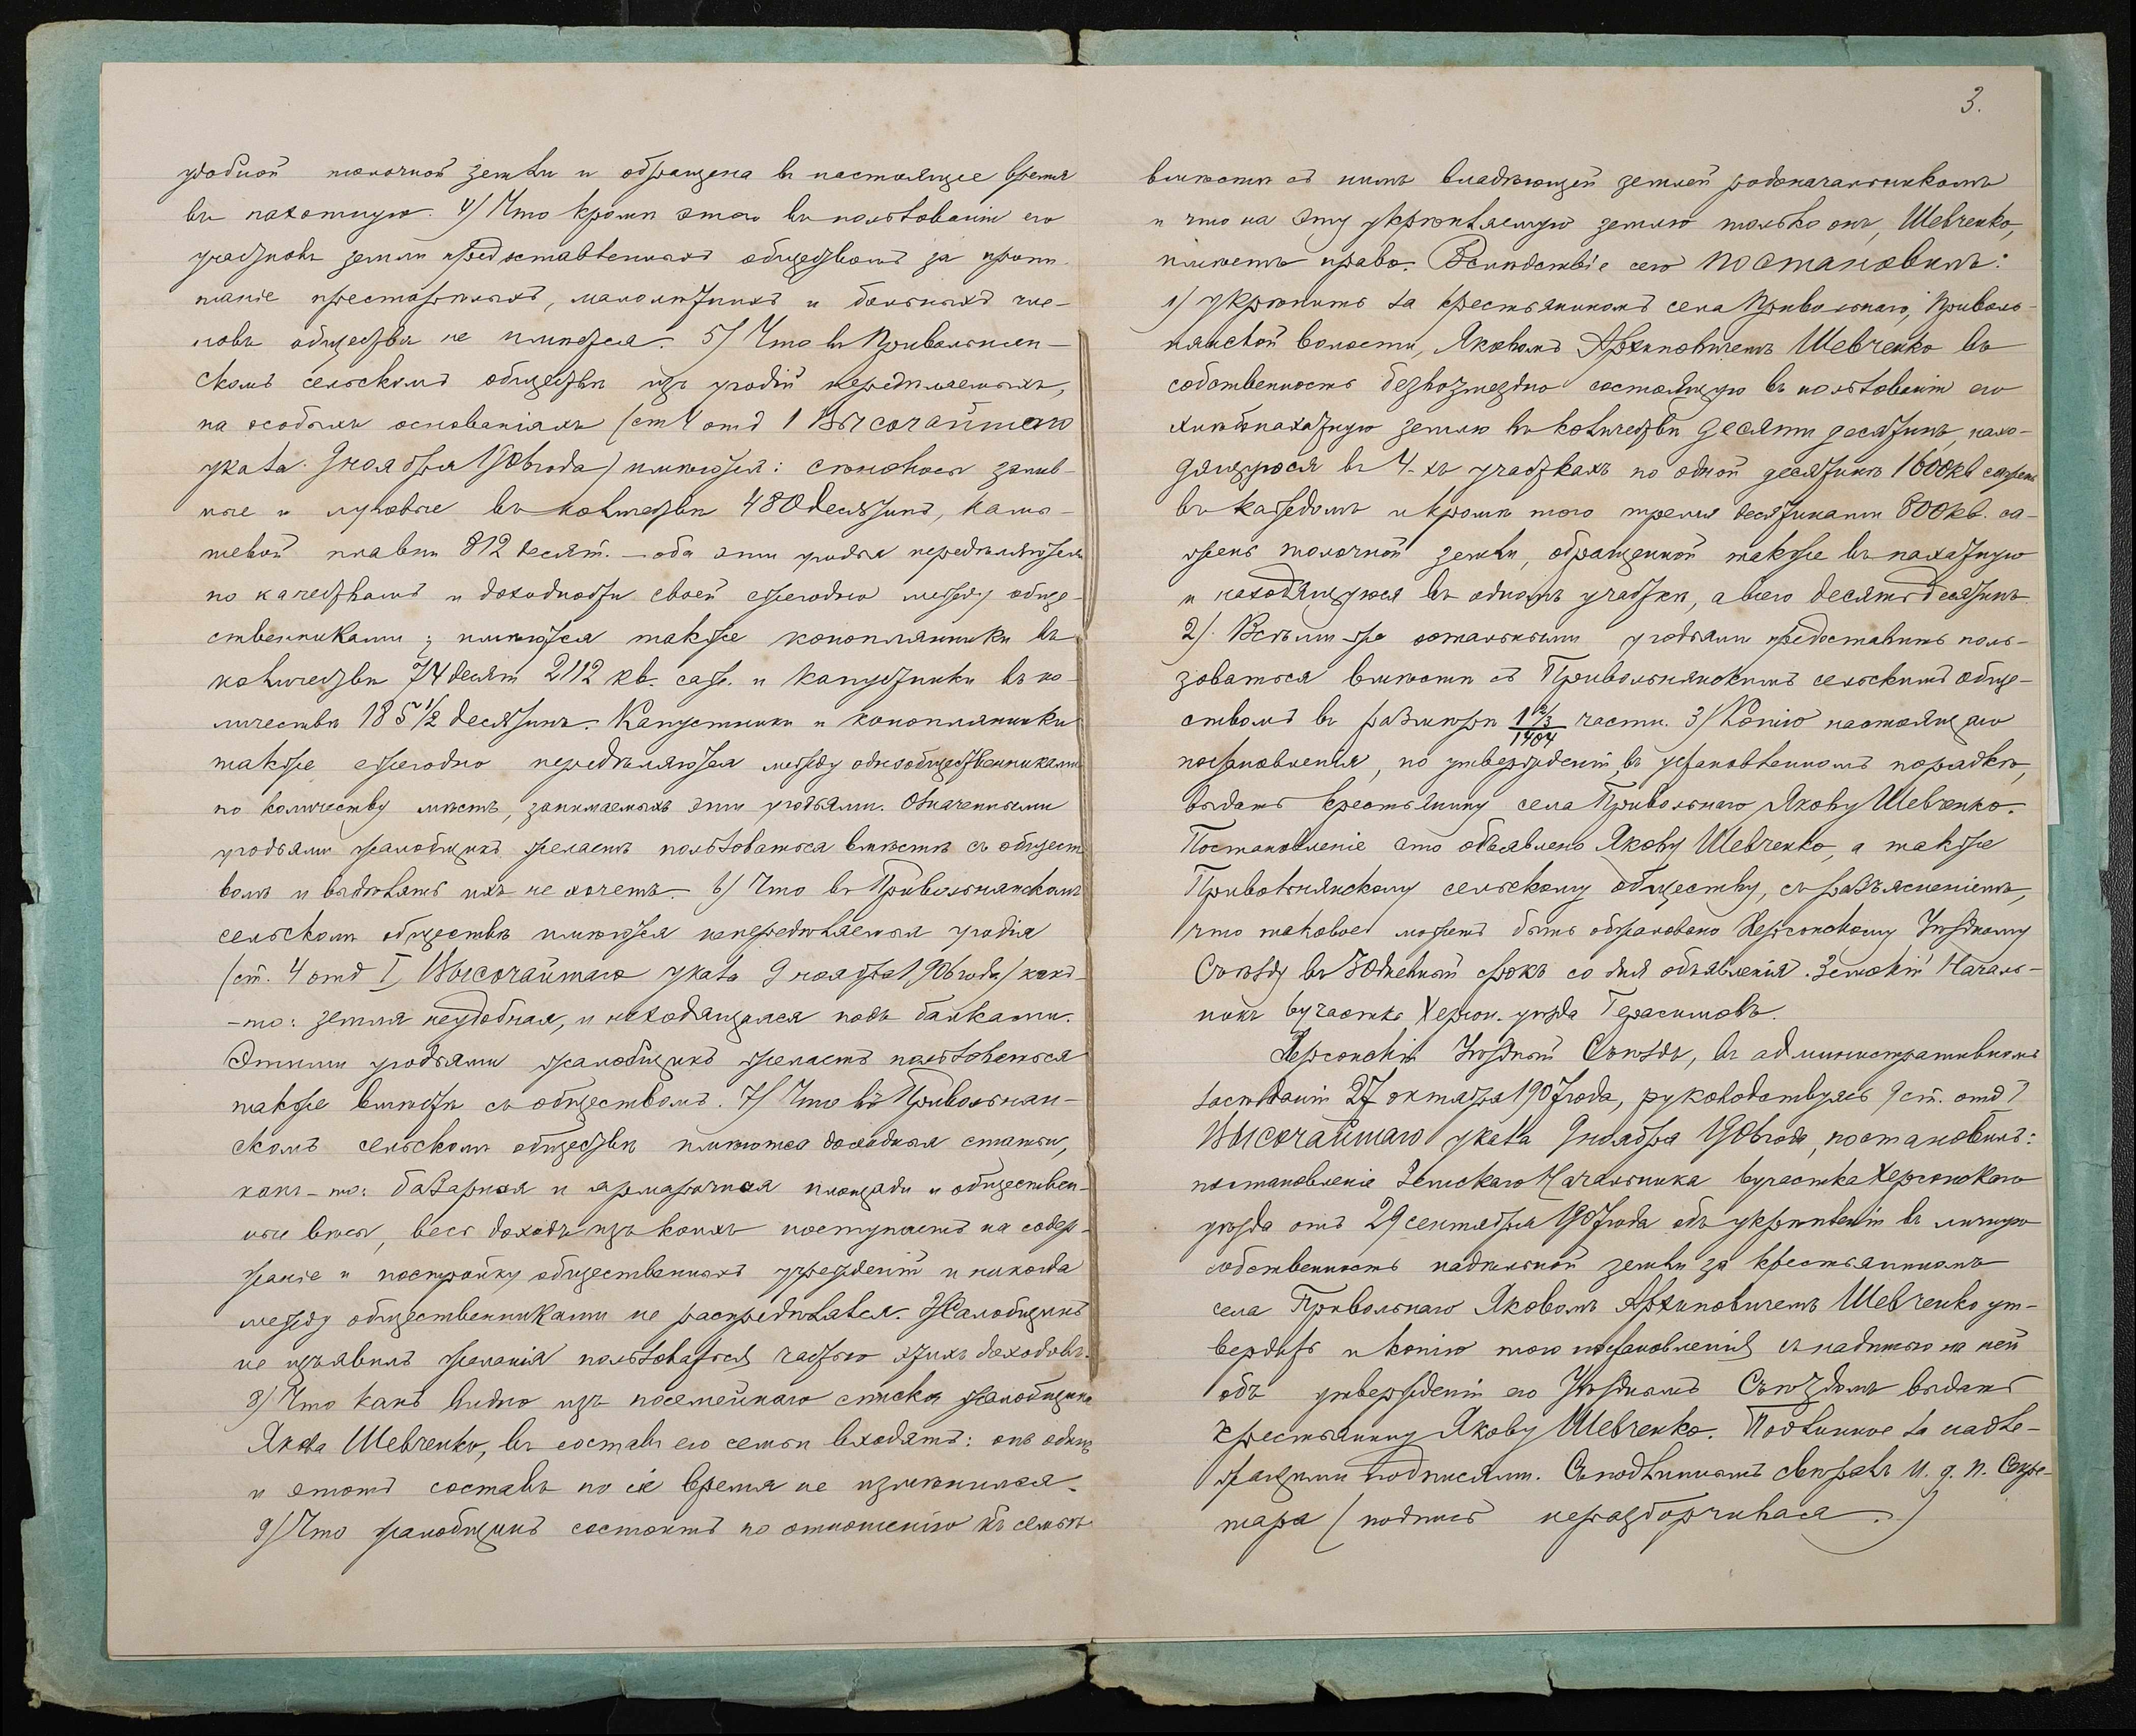 удобной толочной земли и обращена въ настоящее время
въ пахотную. 4) Что кромѣ этого въ пользованіи его
участковъ земли предоставленныхъ обществомъ за пропи
таніе престарѣлыхъ, малолѣтнихъ и больныхъ чле-
новъ общества не имѣется. 5) Что въ Привольнян-
скомъ сельскомъ обществѣ изъ угодій передѣляемыхъ,
на особыхъ основаніяхъ (ст 4 отд 1 Высочайшаго
указа 9 ноября 1906 года) имѣются: сѣнокосы залив-
ные и луговые въ количествѣ 480 десятинъ, камы-
шевой плавни 812 десят. – оба эти угодья передѣляются
по качествамъ и доходности своей ежегодно между обще-
ственниками; имѣются также конопляники въ
количествѣ 74 десят 2112 кв. саж. и капустники въ ко-
личествѣ 185 1/2 десятинъ. Капустники и конопляники
также ежегодно передѣляются между однообщественниками
по количеству мѣстъ, занимаемыхъ этими угодьями. Означенными
угодьями жалобщикъ желаетъ пользоваться вмѣстѣ съ общест
вомъ и выдѣлять ихъ не хочетъ. 6) Что въ Привольнянскомъ
сельскомъ обществѣ имѣются непередѣляемыя угодія
(ст. 4 отд I, Высочайшаго указа 9 ноября 1906 года) какъ
-то: земля неудобная, и находящаяся подъ балками.
Этими угодьями жалобщикъ желаетъ пользоваться
также вмѣстѣ съ обществомъ. 7) Что въ Привольнян-
скомъ сельскомъ обществѣ имѣются доходныя статьи,
какъ-то: базарная и ярмарочная площади и обществен-
ные вѣсы, весь доходъ изъ коихъ поступаетъ на содер-
жаніе и постройку общественныхъ учрежденій и никогда
между общественниками не распредѣлялся. Жалобщикъ
не изъявилъ желанія пользоваться частью этихъ доходовъ.
8) Что какъ видно изъ посемейнаго списка жалобщика
Якова Шевченко, въ составъ его семьи входятъ: онъ одинъ
и этотъ составъ по сіе время не измѣнился.
9) Что жалобщикъ состоитъ по отношенію къ семьѣ
3.
вмѣстѣ съ нимъ владѣющей землей родоначальникомъ
и что на эту укрѣпляемую землю только онъ, Шевченко,
имѣетъ право. Вслѣдствіе сего постановилъ:
1) укрѣпить за крестьяниномъ села Привольнаго, Приволь-
нянской волости, Яковомъ Архиповичемъ Шевченко въ
собственность безвозмездно состоящую въ пользованіи его
хлѣбопахатную землю въ количествѣ десяти десятинъ, нахо-
дящуюся въ 4-хъ участкахъ по одной десятинѣ 1600 кв сажень
въ каждомъ и кромѣ того тремя десятинами 800 кв. са-
жень толочной земли, обращенной также въ пахатную
и находящуюся въ одномъ участкѣ, а всего десять десятинъ
2). Всѣми же остальными угодьями предоставить поль-
зоваться вмѣстѣ съ Привольнянскимъ сельскимъ обще-
ствомъ въ размѣрѣ 1 2/3 / 1404 части. 3) Копію настоящаго
постановленія, по утвержденіи, въ установленномъ порядкѣ,
выдать крестьянину села Привольнаго Якову Шевченко.
Постановленіе это объявлено Якову Шевченко, а также
Привольнянскому сельскому обществу, съ разъясненіемъ,
что таковое можетъ быть обжаловано Херсонскому Уѣздному
Съѣзду въ 30 дневный срокъ со дня объявленія. Земскій Началь-
никъ 6 участка Херсон. уѣзда Герасимовъ.
Херсонскій Уѣздный Съѣздъ, въ административномъ
засѣданіи 27 октября 1907 года, руководствуясь 9 ст. отд I
Высочайшаго указа 9 ноября 1906 года, постановилъ:
постановленіе Земскаго Начальника 6 участка Херсонскаго
уѣзда отъ 29 сентября 1907 года объ укрѣпленіи въ личную
собственность надѣльной земли за крестьяниномъ
села Привольнаго Яковомъ Архиповичемъ Шевченко ут-
вердить и копію того постановленія съ надписью на ней
объ утвержденіи его Уѣзднымъ Съѣздомъ выдать
крестьянину Якову Шевченко. Подлинное за надле-
жащими подписями. Съ подлиннымъ свѣрялъ И. д. п. Секре-
таря (подпись неразборчивая.)